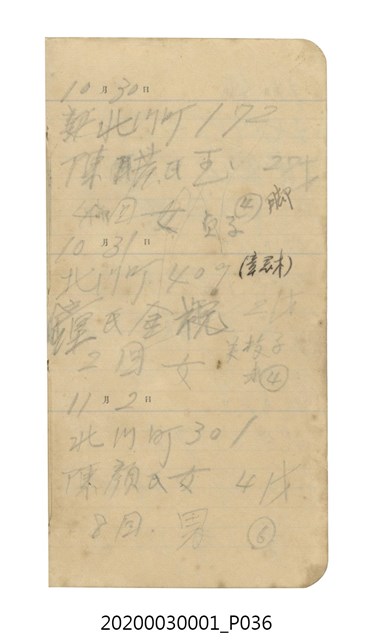 10月30日
新北川町172
陳 氏玉 27才
4回 女 貞子 ④ 脚
10月31日
北川町407
鐘氏金 21才
2回 女 美枝子 ④
11月2日
北川町301
陳顔氏女 41才
8回 男 ⑥
20200030001_P036